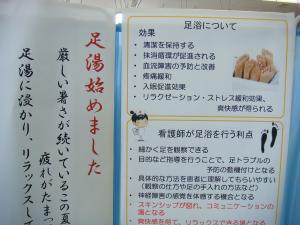 足湯始めました
厳しい暑さが続いているこの夏
疲れがたまっ
足湯に浸かり、リラックスして
足浴について
効果
・ 清潔を保持する
・ 末消循環が促進される
・ 血流障害の予防と改善
・ 疼痛緩和
・ 入眠促進効果
・ リラクゼーション・ストレス緩和効果、
爽快感が得られる
看護師が足浴を行う利点
・ 細かく足を観察できる
・ 目的など指導を行うことで、足トラブルの
予防の動機付けとなる
・ 具体的な方法を患者に理解してもらいやすい
(観察の仕方や足の手入れの方法など)
・ 神経障害の感覚を体感する機会となる
・ スキンシップが図れ、コミュニケーションの
場となる
・ 爽快感を得て、リラックスできる場となる